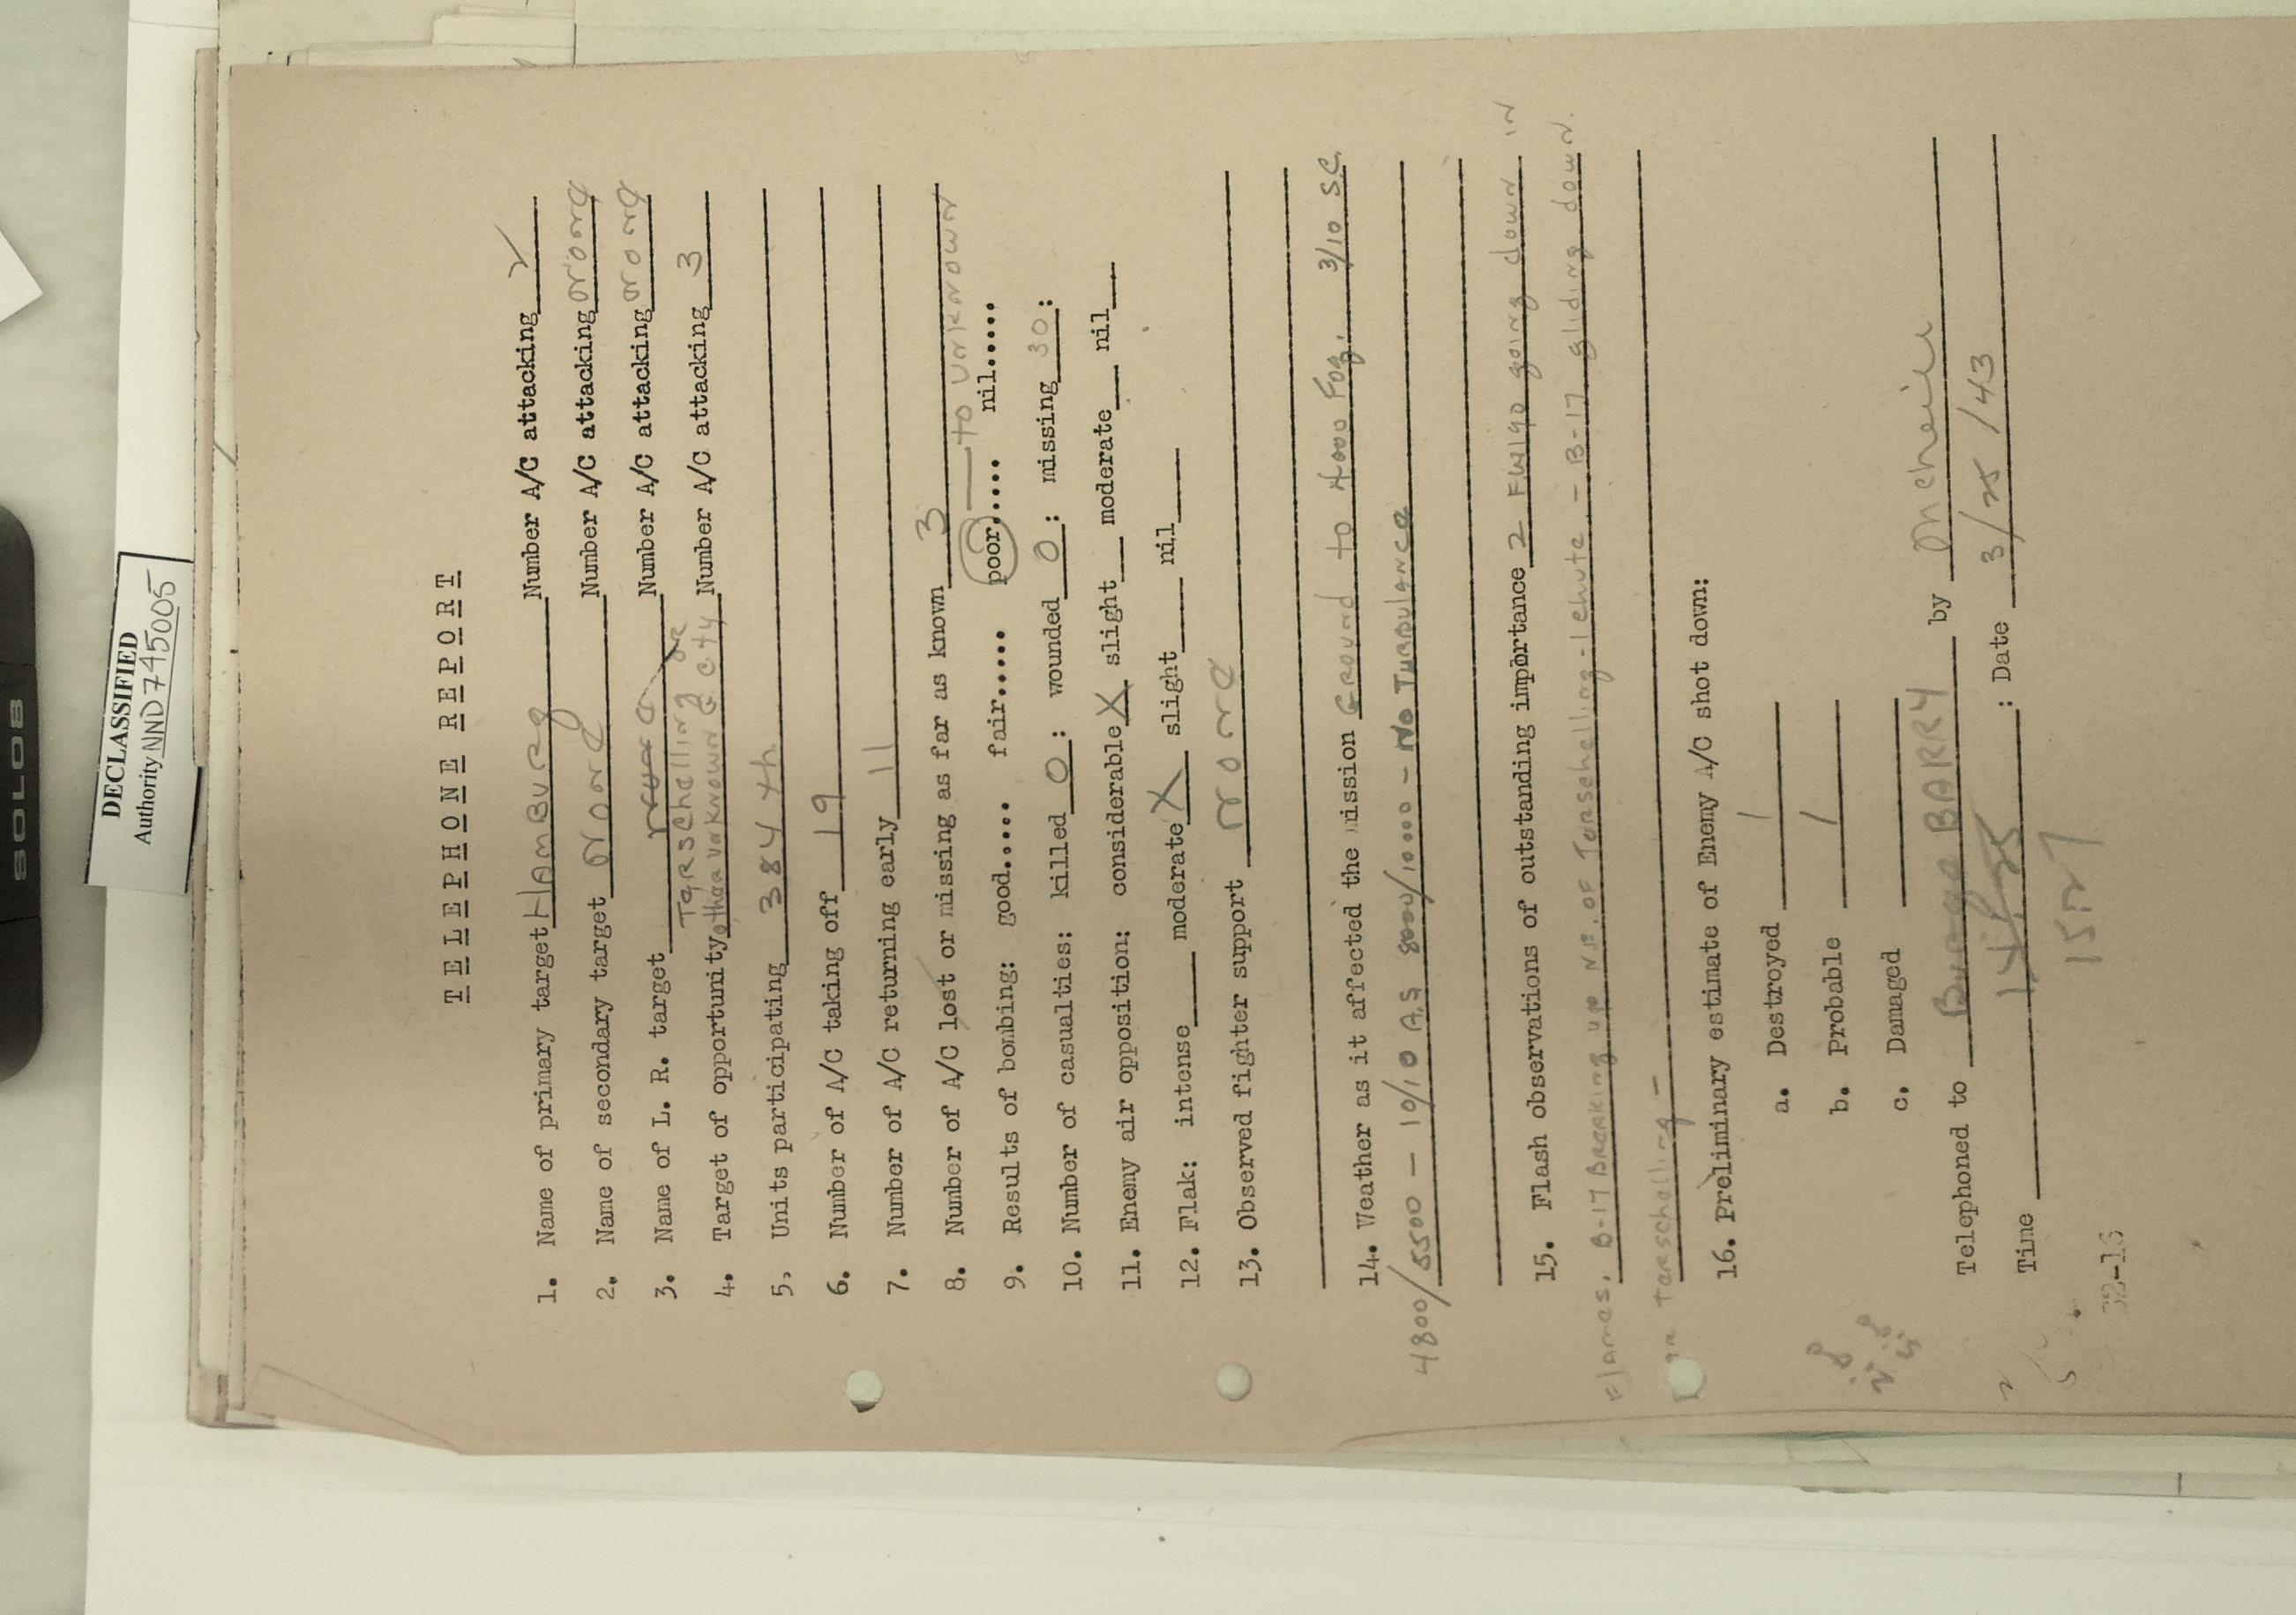 SOLO8
DECLASSIFIED
Authority NND 745005
TELEPHONE REPORT
1. Name of primary target Hamburg Number A/C attacking 2
2. Name of secondary target none Number A/C attacking none
3. Name of L. R. target Number A/C attacking none
Tarschelling or
4. Target of opportunity other unknown G. city Number A/C attacking 3
5. Units participating 384th
6. Number of A/C taking off 19
7. Number of A/C returning early 11
8. Number of A/C lost or missing as far as known 3
9. Results of bombing: good..... fair..... poor..... nil...... to unknown
10. Number of casualties: killed 0: wounded 0: missing 30:
11. Enemy air opposition: considerable X slight moderate nil
12. Flak: intense moderate X slight nil
13. Observed fighter support none
14. Weather as it affected the mission Ground to 4000 Fog, 3/10 S.C.
4800/5500 - 10/10 A.S 8000/10000 - No Turbulance
15. Flash observations of outstanding importance 2 F.W190 going down in
Flames, B-17 Breaking up N.E. of Tarschelling - 1 chute - B-17 gliding down
on tarschelling -
16. Preliminary estimate of Enemy A/C shot down:
a. Destroyed 1
b. Probable 1
c. Damaged
Telephoned to BARRY by
Time : Date /43
32-13